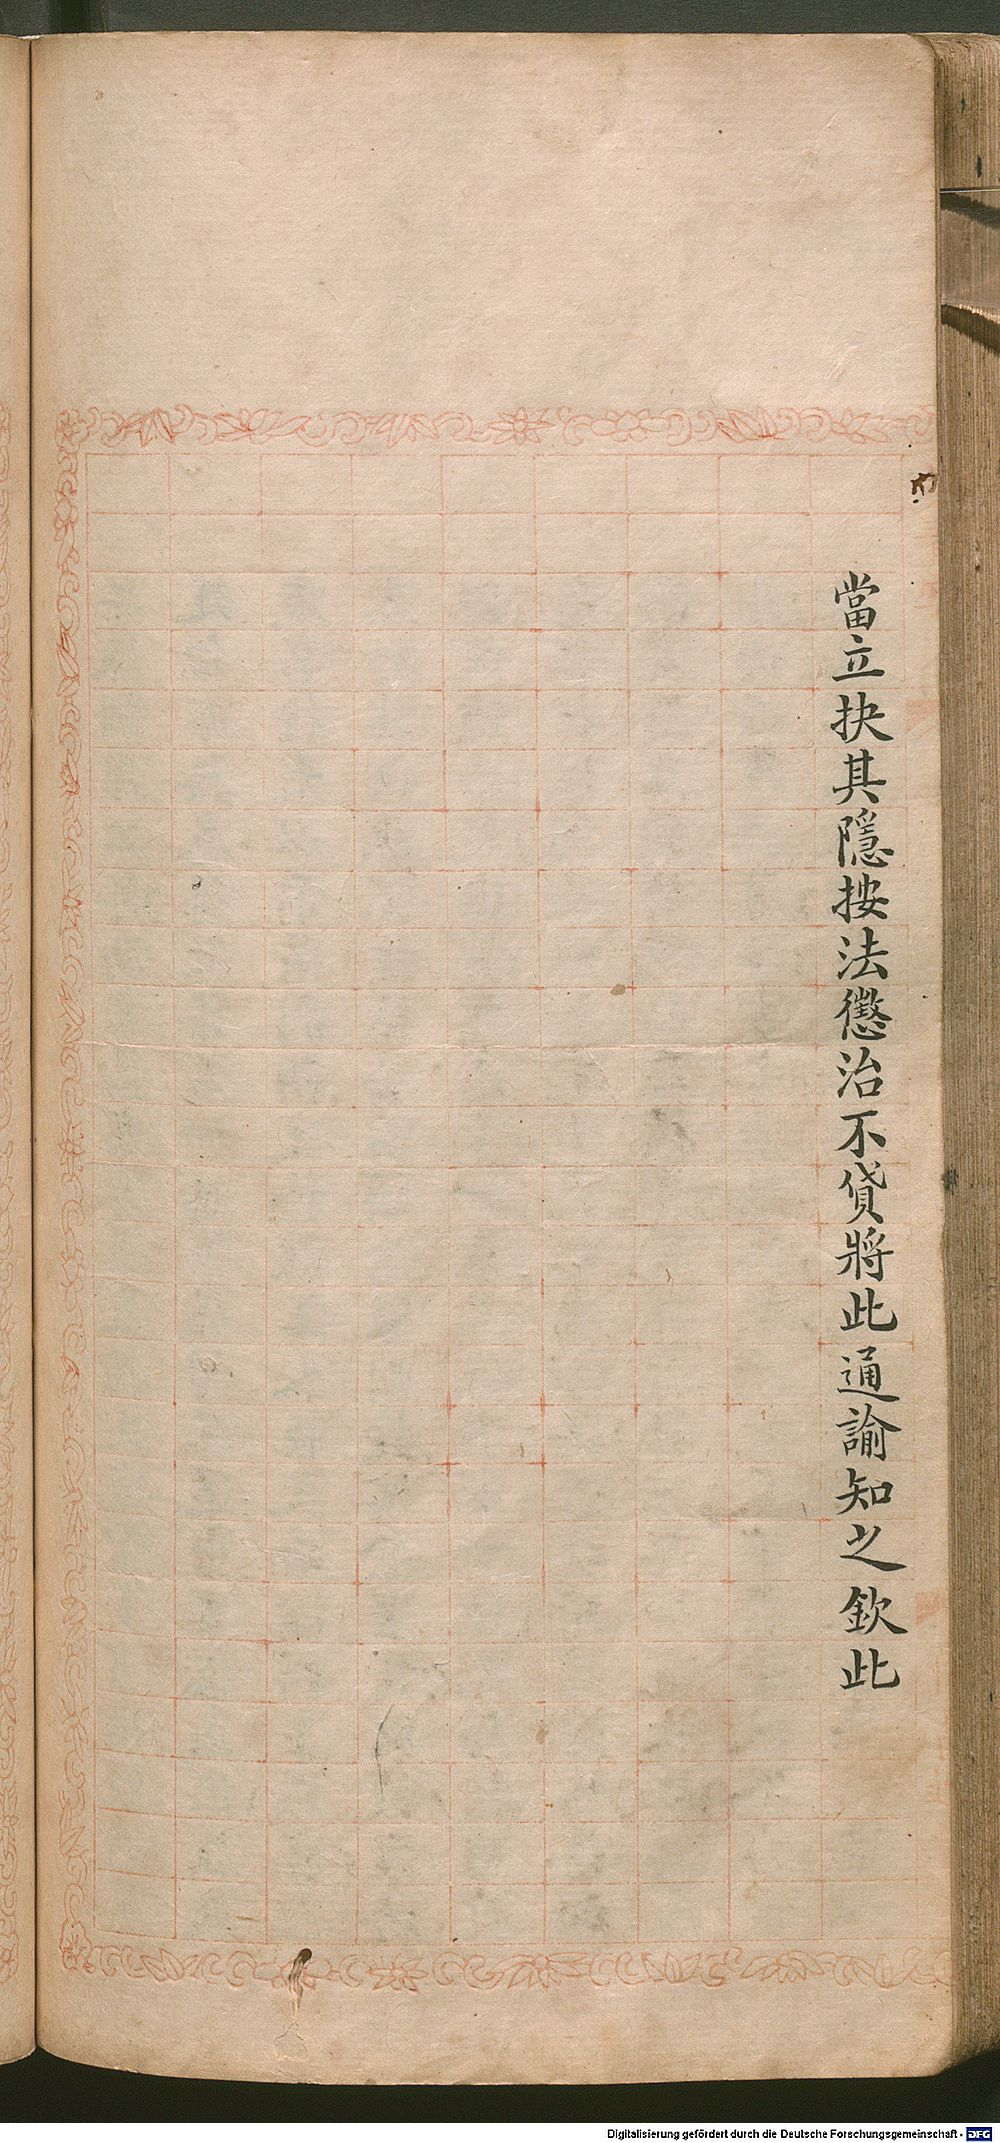 當立抉其隱按法懲治不貸將此通諭知之欽此
Digitalisierung gefördert durch die Deutsche Forschungsgemeinschaft - DFG